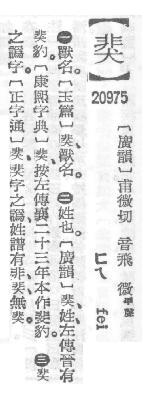 【猆】
20975
〔廣韻〕甫微切 音飛 微平聲
ㄈㄟ fei
㊀獸名。〔玉篇〕猆、獸名。㊁姓也。〔廣韻〕猆、姓、左傳晉有
猆豹。〔康熙字典〕猆、按左傳襄二十三年本作斐豹。㊂裴
之譌字。〔正字通〕猆、裴字之譌、姓譜有非裴無猆。